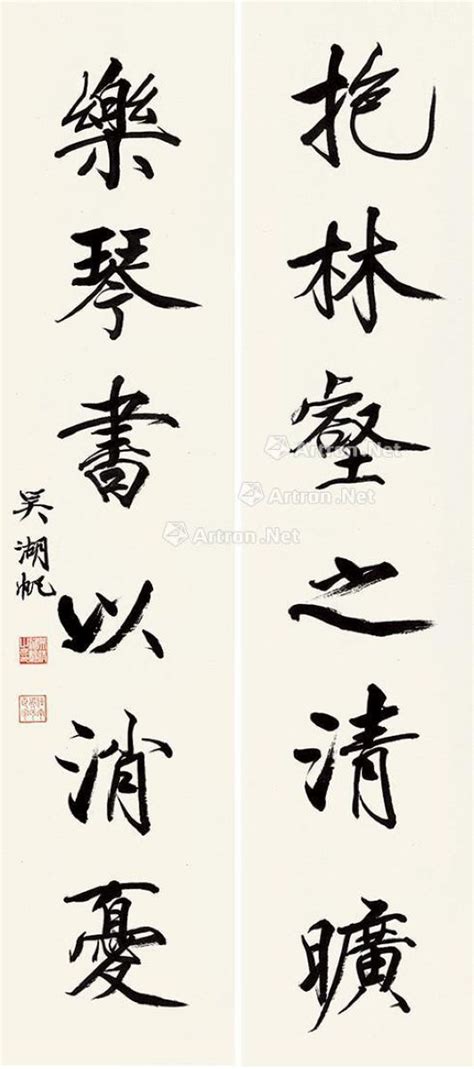 抱林壑之清曠
樂琴書以消憂
吳湖帆
Artron.Net
Artron.Net
Artron.Net